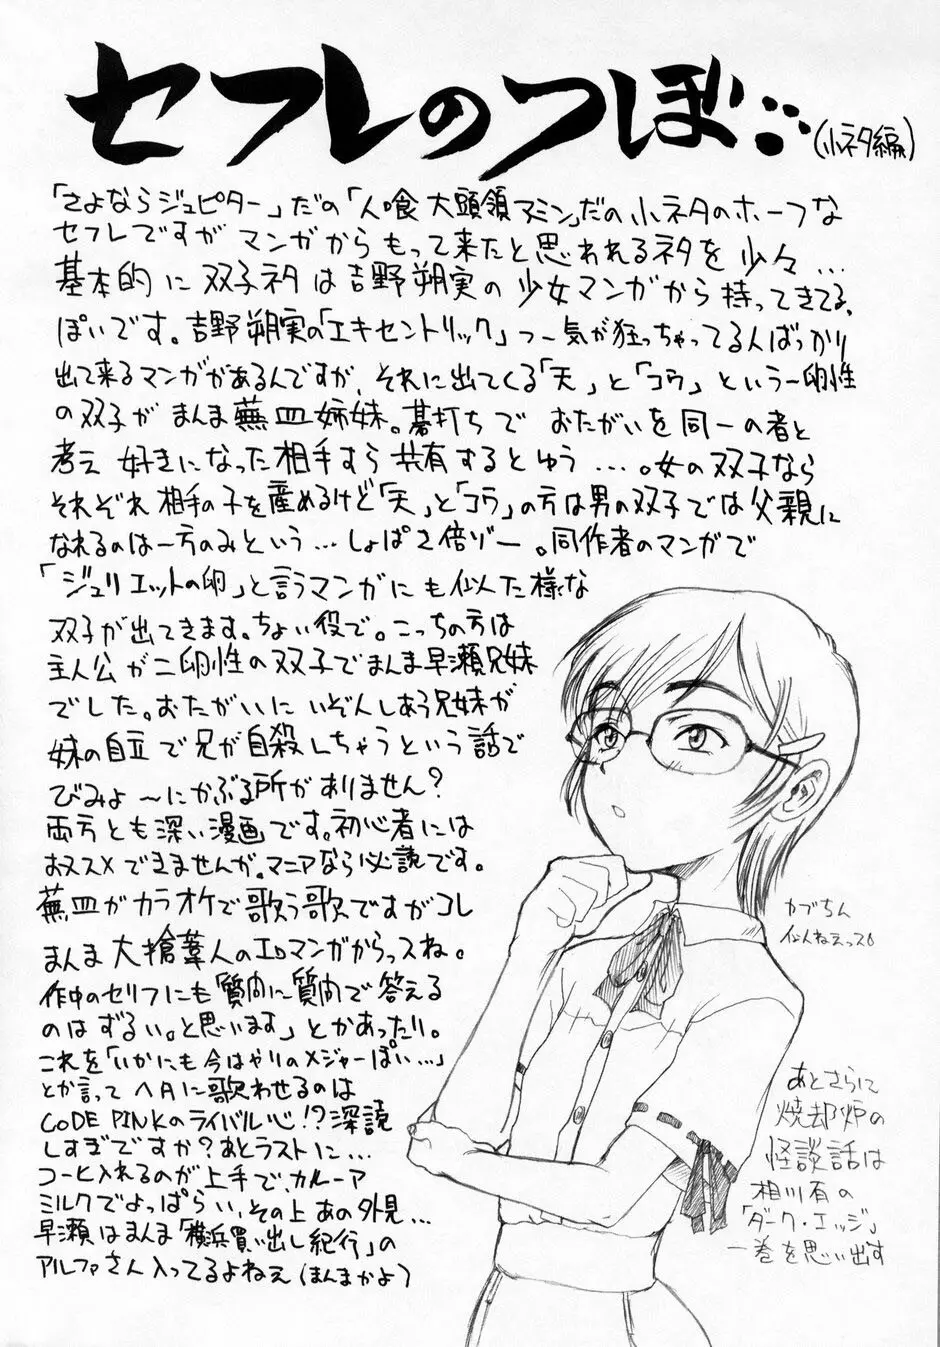 セフレのつぼ…
(小ネタ編)
「さよならジュピター」だの「人喰大頭領アミン」だの小ネタのホーフな
セフレですが マンガからもって来たと思われるネタを少々…
基本的に双子ネタは吉野朔実の少女マンガから持ってきてる、
ぽいです。吉野朔実の「エキセントリック」つー気が狂っちゃってる人ばっかり
出て来るマンガがあるんですが、それに出てくる「天」と「コウ」という一卵性
の双子がまんま蕪皿姉妹。碁打ちで おたがいを同一の者と
考え 好きになった相手すら共有するとゆう…。女の双子なら
それぞれ相手の子を産めるけど「天」と「コウ」の方は男の双子では父親に
なれるのは一方のみという…しょぱさ倍ゾー。同作者のマンガで
「ジュリエットの卵」と言うマンガにも似た様な
双子が出てきます。ちょい役で。こっちの方は
主人公が二卵性の双子でまんま早瀬兄妹
でした。おたがいにいぞんしあう兄妹が
妹の自立で兄が自殺しちゃうという話で
びみょ〜にかぶる所がありません?
両方とも深い漫画です。初心者には
おススメできませんが。マニアなら必読です。
蕪皿がカラオケで歌う歌ですがコレ
まんま大槍葦人のエロマンガからっスね。
作中のセリフにも「質問に質問で答える
のはずるい。と思います」とかあったり。
これを「いかにも今はやりのメジャーぽい…」
とか言ってヘタに歌わせるのは
CODE PINKのライバル心!?深読
しすぎですか?あとラストに…
コーヒ入れるのが上手で、カルーア
ミルクでよっぱらい、その上あの外見…
早瀬はまんま「横浜買い出し紀行」の
アルファさん入ってるよねぇ(まんまかよ)
カブちん
似んねぇっス。
あとさらに
焼却炉の
怪談話は
相川有の
「ダーク・エッジ」
一巻を思い出す